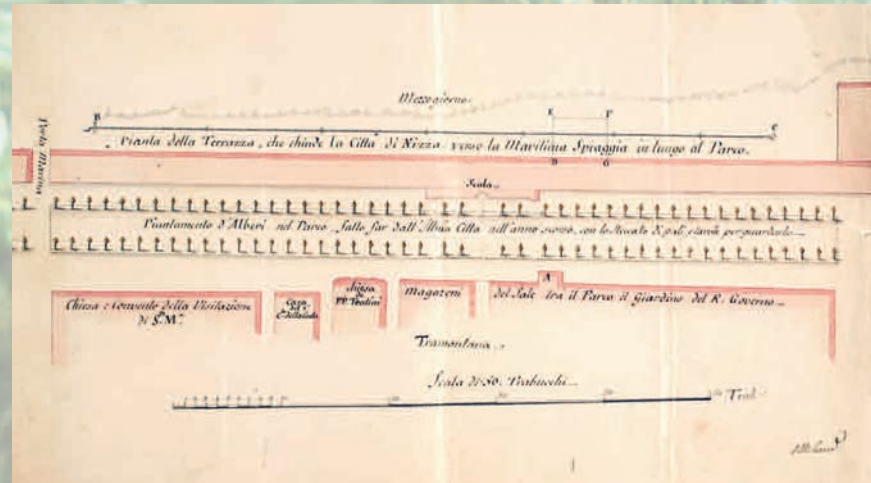 Mezzogiorno.
B
E F
C
Pianta della Terrazza, che chiude la Città di Nizza verso la Marittima Spiaggia in lungo al Parco.
D G
Porta Marina
Scala
Piantamento d'Alberi nel Parco fatto far dall' Illma Città nell'anno scorso, con lo Steccato di pali, per guardarlo
A
Chiesa e Convento della Visitazione di S. M.
Casa
Chiesa
PP. Teatini
Magazeni
del Sale tra il Parco il Giardino del R. Governo
Tramontana
Scala di 50. Trabucchi
Trab.